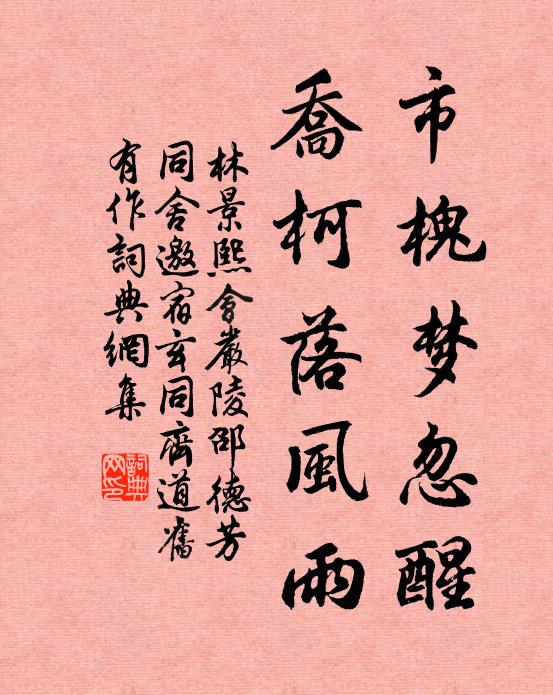 市槐梦忽醒
喬柯落風雨
林景熙會嚴陵邵德芳
同舍邀宿玄同齋道舊
有作詞典網集
詞典
网印